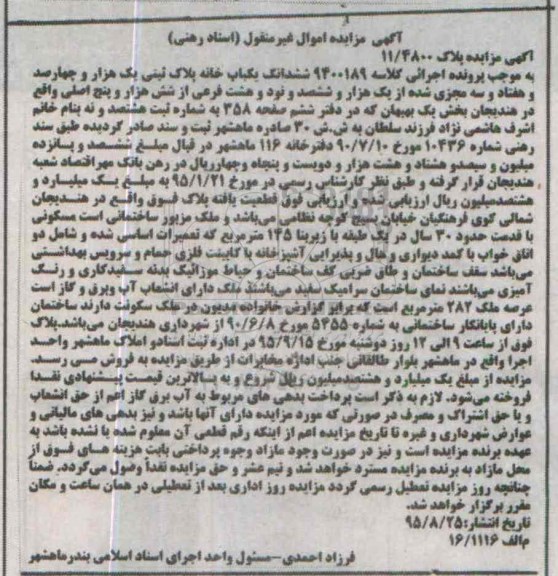 آگهی مزایده اموال غیرمنقول (اسناد رهنی)
آگهی مزایده پلاک ۱۱/۴۸۰۰
به موجب پرونده اجرائی کلاسه ۹۴۰۰۱۸۹ ششدانگ یکباب خانه پلاک ثبتی یک هزار و چهارصد
و هفتاد و سه مجزی شده از یک هزار و ششصد و نود و هشت فرعی از شش هزار و پنج اصلی واقع
در هندیجان بخش یک بهبهان که در دفتر ششم صفحه ۳۵۸ به شماره ثبت هشتصد و نه بنام خانم
اشرف هاشمی نژاد فرزند سلطان به ش.ش ۳۰ صادره ماهشهر ثبت و سند صادر گردیده طبق سند
رهنی شماره ۱۰۴۳۶ مورخ ۹۰/۷/۱۰ دفترخانه ۱۱۶ ماهشهر در قبال مبلغ ششصد و پانزده
میلیون و سیصدو هشتاد و هشت هزار و دویست و پنجاه وچهارریال در رهن بانک مهراقتصاد شعبه
هندیجان قرار گرفته و طبق نظر کارشناس رسمی در مورخ ۹۵/۱/۲۱ به مبلغ یک میلیارد و
هشتصدمیلیون ریال ارزیابی شده و ارزیابی فوق قطعیت یافته پلاک فوق واقع در هندیجان
شمالی کوی فرهنگیان خیابان بسیج کوچه نظامی می‌باشد و ملک مزبور ساختمانی است مسکونی
با قدمت حدود ۳۰ سال در یک طبقه با زیربنا ۱۴۵ مترمربع که تعمیرات اساسی شده و شامل دو
اتاق خواب با کمد دیواری وهال و پذیرایی آشپزخانه با کابینت فلزی حمام و سرویس بهداشتی
می‌باشد سقف ساختمان و طاق ضربی کف ساختمان و حیاط موزائیک بدنه سفیدکاری و رنگ
آمیزی می‌باشند نمای ساختمان سرامیک سفید می‌باشند ملک دارای انشعاب آب وبرق و گاز است
عرصه ملک ۲۸۲ مترمربع است که برابر گزارش خانواده مدیون در ملک سکونت دارند ساختمان
دارای پایانکار ساختمانی به شماره ۵۴۵۵ مورخ ۹۰/۶/۸ از شهرداری هندیجان می‌باشد.پلاک
فوق از ساعت ۹ الی ۱۲ روز دوشنبه مورخ ۹۵/۹/۱۵ در اداره ثبت اسنادو املاک ماهشهر واحد
اجرا واقع در ماهشهر بلوار طالقانی جنب اداره مخابرات از طریق مزایده به فروش می رسد.
مزایده از مبلغ یک میلیارد و هشتصدمیلیون ریال شروع و به بالاترین قیمت پیشنهادی نقدا
فروخته می‌شود. لازم به ذکر است پرداخت بدهی های مربوط به آب برق گاز اعم از حق انشعاب
و یا حق اشتراک و مصرف در صورتی که مورد مزایده دارای آنها باشد و نیز بدهی های مالیاتی و
عوارض شهرداری و غیره تا تاریخ مزایده اعم از اینکه رقم قطعی آن معلوم شده یا نشده باشد به
عهده برنده مزایده است و نیز در صورت وجود مازاد وجوه پرداختی بابت هزینه های فوق از
محل مازاد به برنده مزایده مسترد خواهد شد و نیم عشر و حق مزایده نقداً وصول می‌گردد. ضمناً
چنانچه روز مزایده تعطیل رسمی گردد مزایده روز اداری بعد از تعطیلی در همان ساعت و مکان
مقرر برگزار خواهد شد.
تاریخ انتشار:۹۵/۸/۲۵
م‌الف ۱۶/۱۱۱۶
فرزاد احمدی-مسئول واحد اجرای اسناد اسلامی بندرماهشهر